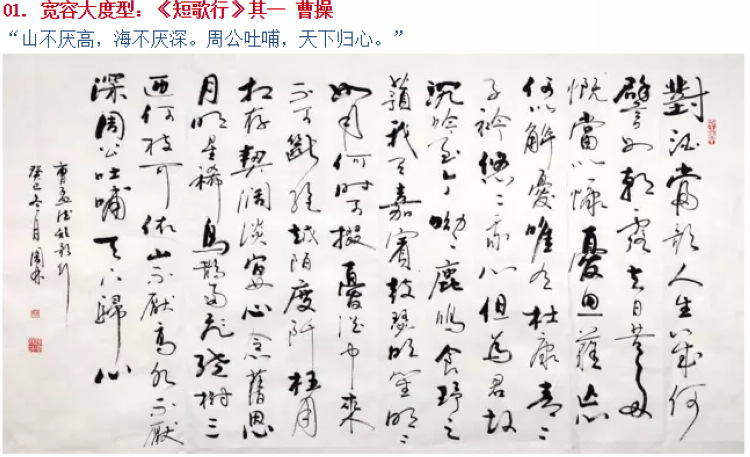 01. 宽容大度型：《短歌行》其一 曹操
“山不厌高，海不厌深。周公吐哺，天下归心。”
對酒當歌人生幾何
譬如朝露去日苦多
慨當以慷憂思難忘
何以解憂唯有杜康青〻
子衿悠〻我心但為君故
沉吟至今呦〻鹿鳴食野之
蘋我有嘉賓鼓瑟吹笙明〻
如月何時可掇憂從中來
不可斷絕越陌度阡枉用
相存契闊談宴心念舊恩
月明星稀烏鵲南飛繞樹三
匝何枝可依山不厭高水不厭
深周公吐哺天下歸心
曹孟德短歌行
癸巳冬月周